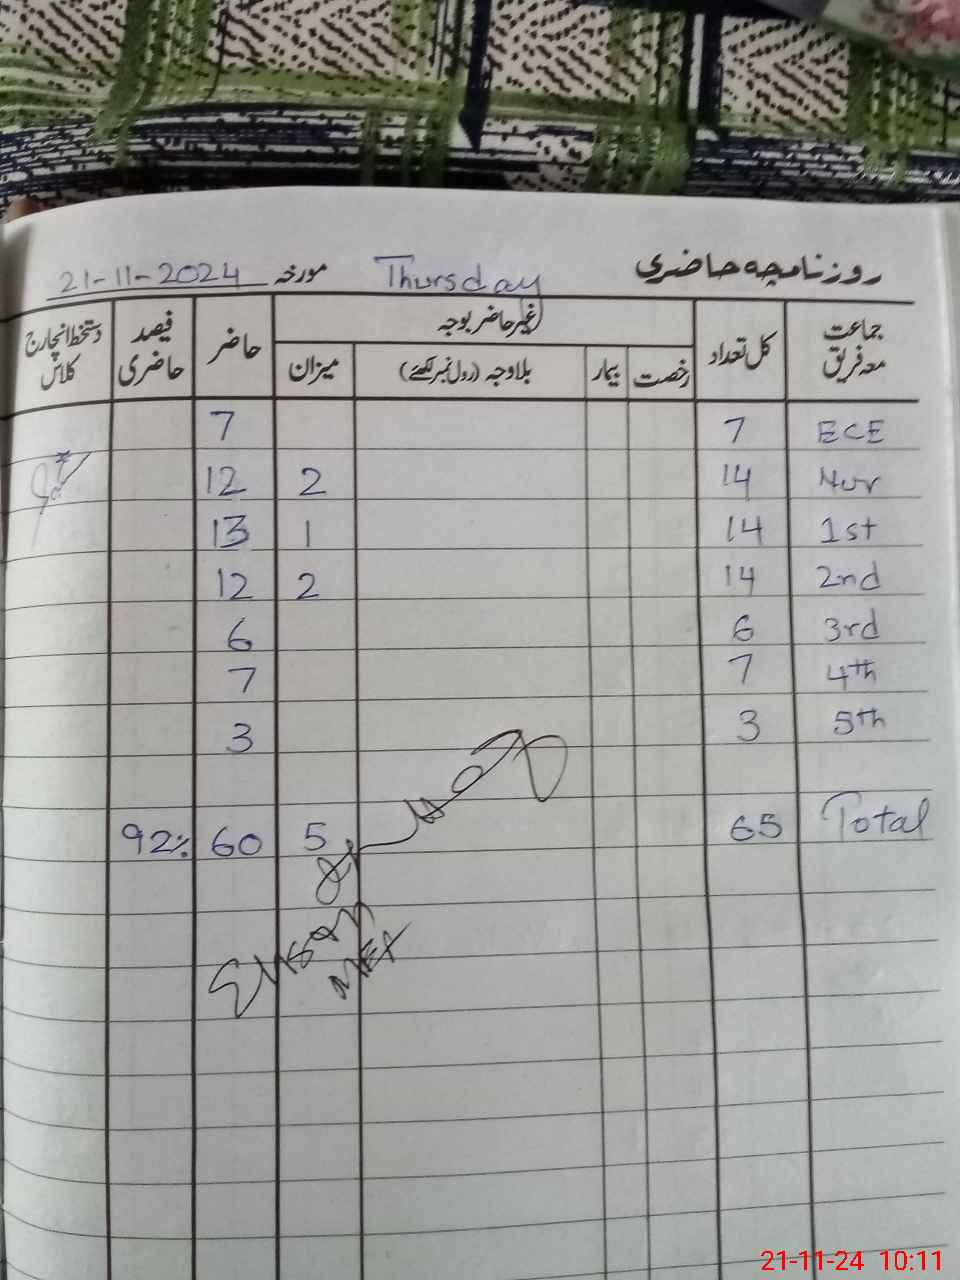 روزنامچہ حاضری Thursday مورخہ 21-11-2024
جماعت معہ فریق کل تعداد غیر حاضر بوجہ حاضر فیصد حاضری دستخط انچارج کلاس
رخصت بیمار بلاوجہ (رول نمبر لکھئے) میزان
ECE 7 7
Nur 14 2 12
1st 14 1 13
2nd 14 2 12
3rd 6 6
4th 7 7
5th 3 3
Total 65 5 60 92%
21-11-24 10:11